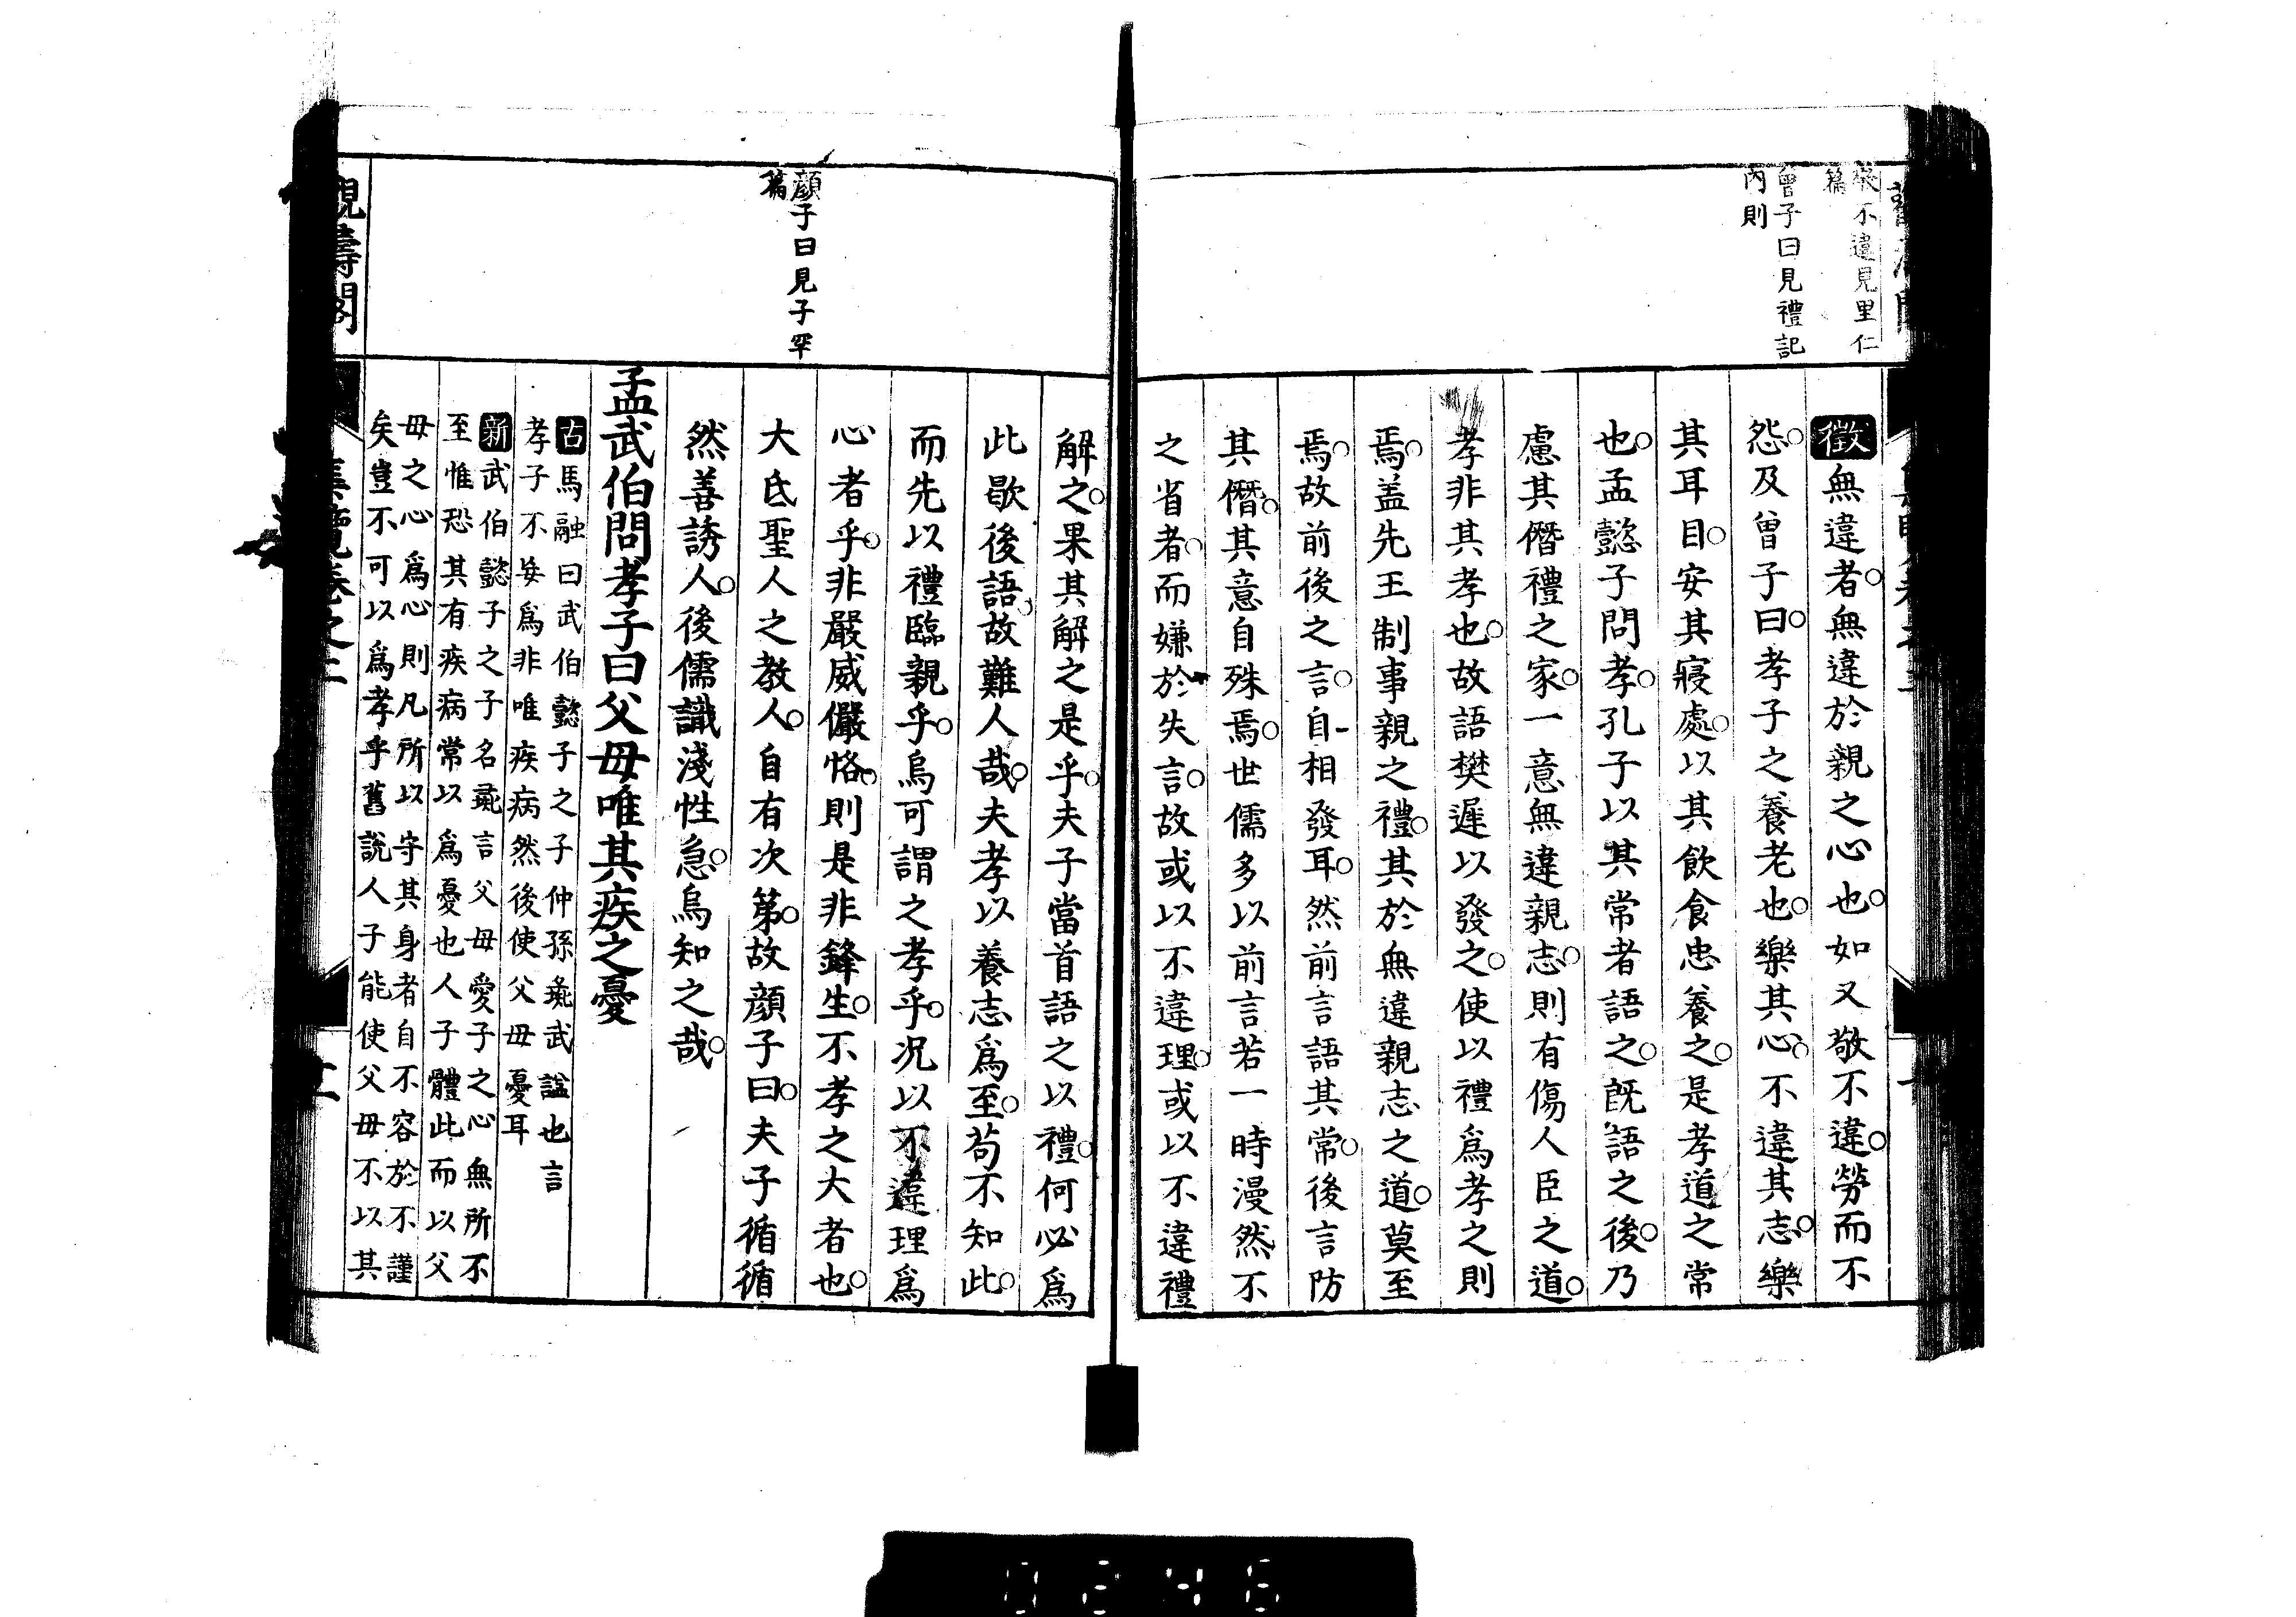 敬不違見里仁
篇
曾子曰見禮記
內則
徵無違者無違於親之心也如又敬不違勞而不
怨及曾子曰孝子之養老也樂其心不違其志樂
其耳目安其寢處以其飲食忠養之是孝道之常
也孟懿子問孝孔子以其常者語之既語之後乃
慮其僭禮之家一意無違親志則有傷人臣之道
孝非其孝也故語樊遲以發之使以禮爲孝之則
焉盖先王制事親之禮其於無違親志之道莫至
焉故前後之言自相發耳然前言語其常後言防
其僭其意自殊焉世儒多以前言若一時漫然不
之省者而嫌於失言故或以不違理或以不違禮
顏子曰見子罕
篇
解之果其解之是乎夫子當首語之以禮何必爲
此歇後語故難人哉夫孝以養志爲至苟不知此
而先以禮臨親乎烏可謂之孝乎况以不違理爲
心者乎非嚴威儼恪則是非鋒生不孝之大者也
大氐聖人之教人自有次第故顏子曰夫子循循
然善誘人後儒識淺性急烏知之哉
孟武伯問孝子曰父母唯其疾之憂
古馬融曰武伯懿子之子仲孫彘武諡也言
孝子不妄爲非唯疾病然後使父母憂耳
新武伯懿子之子名彘言父母愛子之心無所不
至惟恐其有疾病常以爲憂也人子體此而以父
母之心爲心則凡所以守其身者自不容於不謹
矣豈不可以爲孝乎舊說人子能使父母不以其
觀濤閣
集覽卷之二